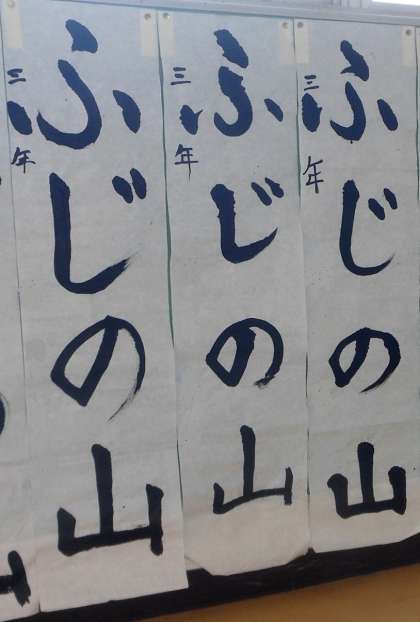 ふじの山
三年
ふじの山
三年
ふじの山
三年